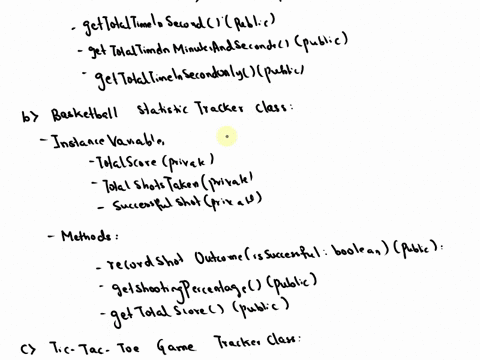 - getTotalTimeInSecond() (public)
- getTotalTimeInMinuteAndSeconds() (public)
- getTotalTimeInSecondonly() (public)
b) Basketball Statistic Tracker Class:
- Instance Variable,
- TotalScore (private)
- Total ShotsTaken (private)
- Successful Shot (private)
- Methods:
- recordShot Outcome (isSuccessful: boolean) (Public):
- getshootingPercentage() (public)
- getTotal Score() (public)
c) Tic-Tac-Toe Game Tracker Class: